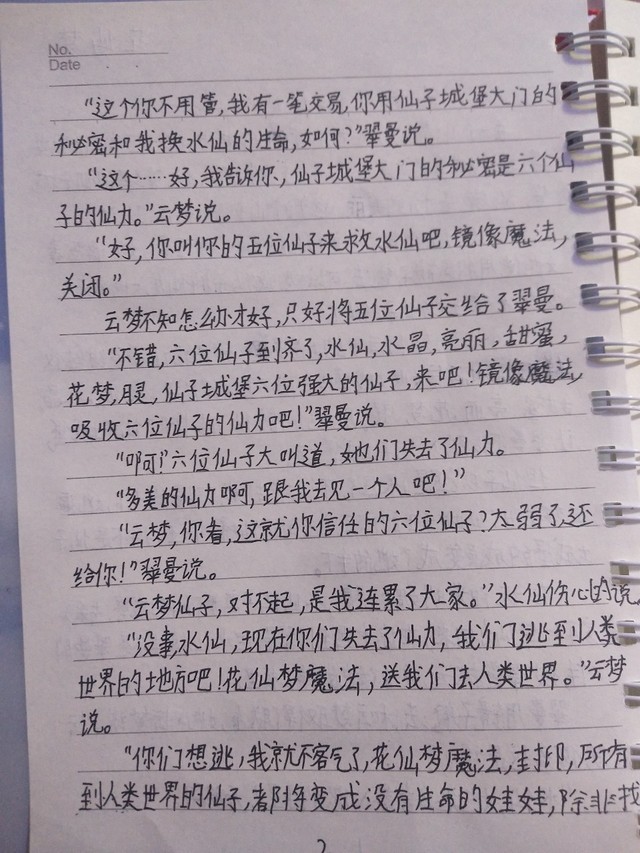 No.
Date
“这个你不用管,我有一笔交易,你用仙子城堡大门的
秘密和我换水仙的生命,如何?”翠曼说。
“这个……好,我告诉你,仙子城堡大门的秘密是六个仙
子的仙力。”云梦说。
“好,你叫你的五位仙子来救水仙吧,镜像魔法,
关闭。”
云梦不知怎么办才好,只好将五位仙子交给了翠曼。
“不错,六位仙子到齐了,水仙,水晶,亮丽,甜蜜,
花梦,月灵,仙子城堡六位强大的仙子,来吧!镜像魔法,
吸收六位仙子的仙力吧!”翠曼说。
“啊!”六位仙子大叫道,她们失去了仙力。
“多美的仙力啊,跟我去见一个人吧!”
“云梦,你看,这就你信任的六位仙子?太弱了,还
给你!”翠曼说。
“云梦仙子,对不起,是我连累了大家。”水仙伤心的说
“没事水仙,现在你们失去了仙力,我们逃到人类
世界的地方吧!花仙梦魔法,送我们去人类世界。”云梦
说。
“你们想逃,我就不客气了,花仙梦魔法,封印,所有
到人类世界的仙子,都将变成没有生命的娃娃,除非找
2